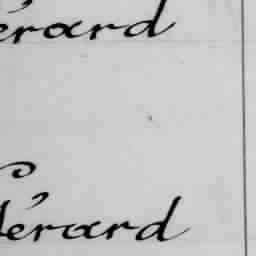 érard
Gérard